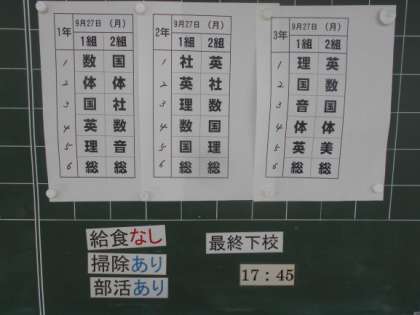 1年 9月27日 (月)
1組 2組
1 数 国
2 体 体
3 国 社
4 英 数
5 理 音
6 総 総
2年 9月27日 (月)
1組 2組
1 社 英
2 英 社
3 理 数
4 数 国
5 国 理
6 総 総
3年 9月27日 (月)
1組 2組
1 理 英
2 国 数
3 音 国
4 体 体
5 英 美
6 総 総
給食なし
掃除あり
部活あり
最終下校
17:45